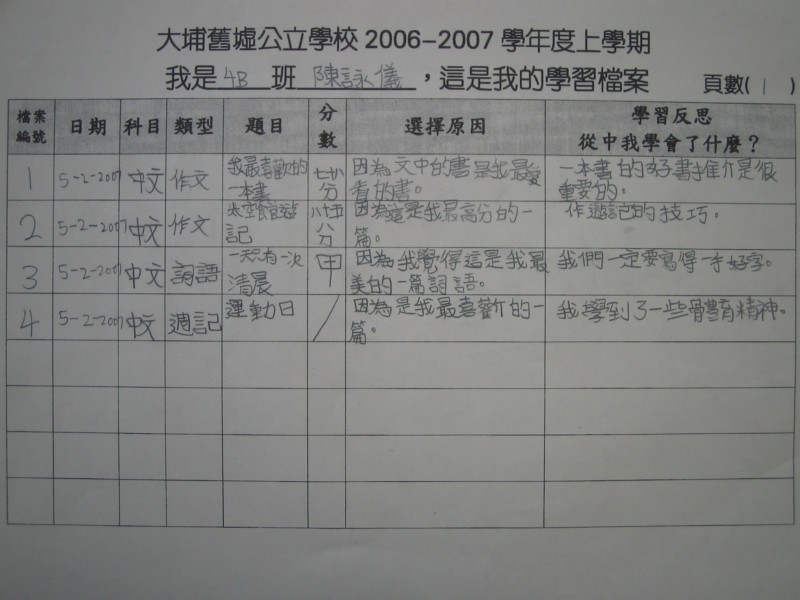 大埔舊墟公立學校 2006-2007 學年度上學期
我是 4B 班 陳詠儀 ，這是我的學習檔案 頁數( 1 )
檔案編號 日期 科目 類型 題目 分數 選擇原因 學習反思 從中我學會了什麼？
1 5-2-2007 中文 作文 我最喜歡的一本書 七十八分 因為文中的書是我最愛看的書。 一本書的好書推介是很重要的。
2 5-2-2007 中文 作文 太空館遊記 八十五分 因為這是我最高分的一篇。 作遊記的技巧。
3 5-2-2007 中文 詞語 一天只有一次清晨 甲 因為我覺得這是我最美的一篇詞語。 我們一定要寫得一手好字。
4 5-2-2007 中文 週記 運動日 / 因為是我最喜歡的一篇。 我學到了一些體育精神。